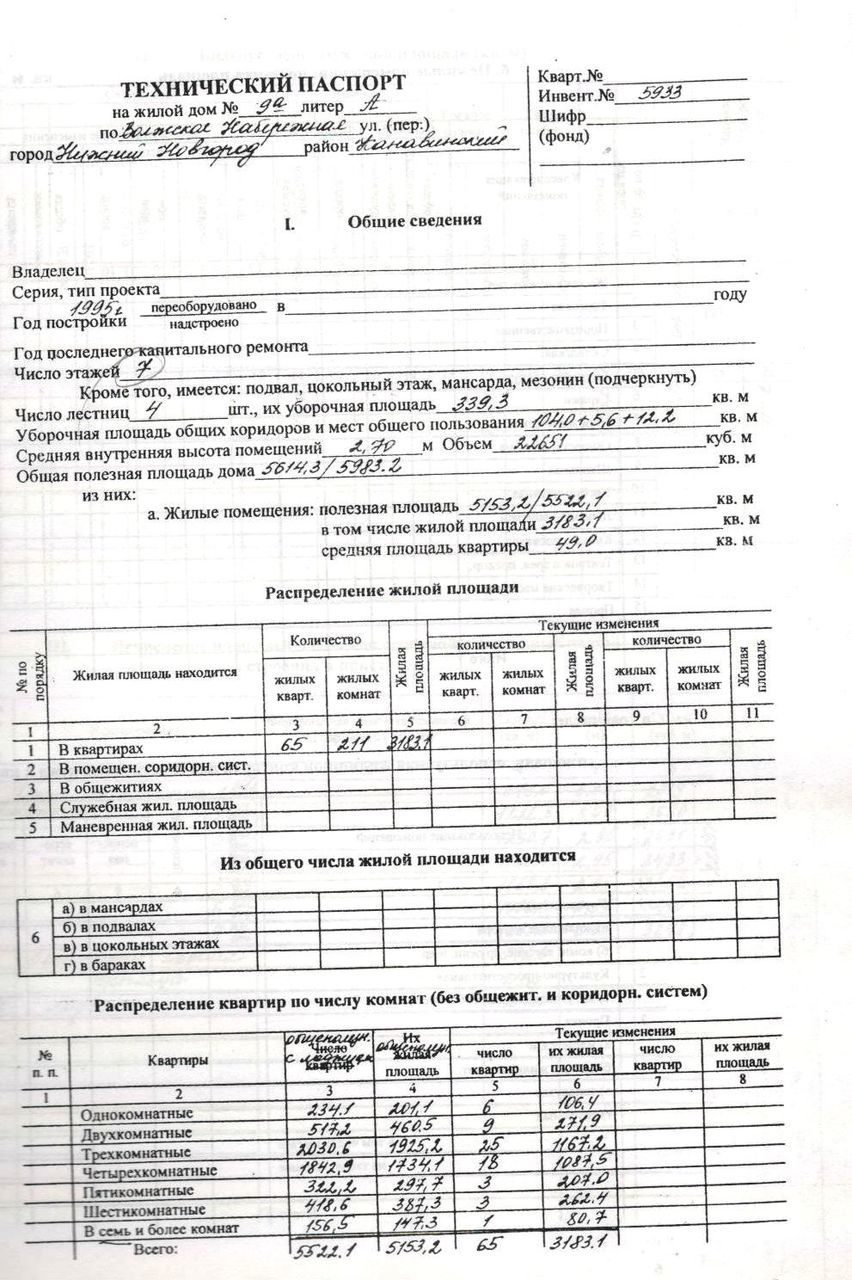 ТЕХНИЧЕСКИЙ ПАСПОРТ
на жилой дом № 9а литер А
по Волжская Набережная ул. (пер:)
город Нижний Новгород район Канавинский
Кварт.№
Инвент.№ 5933
Шифр
(фонд)
I. Общие сведения
Владелец
Серия, тип проекта
Год постройки 1995г переоборудовано надстроено в году
Год последнего капитального ремонта
Число этажей 7
Кроме того, имеется: подвал, цокольный этаж, мансарда, мезонин (подчеркнуть)
Число лестниц 4 шт., их уборочная площадь 339,3 кв. м
Уборочная площадь общих коридоров и мест общего пользования 104,0+5,6+12,2 кв. м
Средняя внутренняя высота помещений 2,70 м Объем 22651 куб. м
Общая полезная площадь дома 5614,3/5983.2 кв. м
из них:
а. Жилые помещения: полезная площадь 5153,2/5522,1 кв. м
в том числе жилой площади 3183,1 кв. м
средняя площадь квартиры 49,0 кв. м
Распределение жилой площади
№ по порядку Жилая площадь находится Количество Жилая площадь Текущие изменения
количество Жилая площадь количество Жилая площадь
жилых кварт. жилых комнат жилых кварт. жилых комнат жилых кварт. жилых комнат
1 2 3 4 5 6 7 8 9 10 11
1 В квартирах 65 211 3183.1
2 В помещен. соридорн. сист.
3 В общежитиях
4 Служебная жил. площадь
5 Маневренная жил. площадь
Из общего числа жилой площади находится
6 а) в мансардах
б) в подвалах
в) в цокольных этажах
г) в бараках
Распределение квартир по числу комнат (без общежит. и коридорн. систем)
№ п. п. Квартиры Число квартир Их жилая площадь Текущие изменения
число квартир их жилая площадь число квартир их жилая площадь
1 2 3 4 5 6 7 8
Однокомнатные 234.1 201,1 6 106,4
Двухкомнатные 517,2 460.5 9 271,9
Трехкомнатные 2030,6 1925,2 25 1167.2
Четырехкомнатные 1842,9 1734,1 18 1087,5
Пятикомнатные 322,2 297,7 3 207.0
Шестикомнатные 418,6 387,3 3 262.4
В семь и более комнат 156,5 147.3 1 80,7
Всего: 5522.1 5153,2 65 3183.1